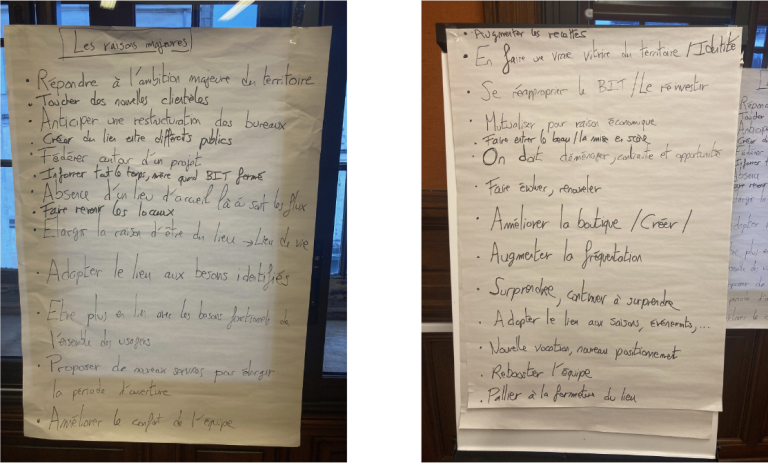 Les raisons majeures
• Répondre à l'ambition majeure du territoire
• Toucher des nouvelles clientèles
• Anticiper une restructuration des bureaux
Créer du lien entre différents publics
• Fédérer autour d'un projet
• Informer tout le temps, même quand BIT fermé
• Absence d'un lieu d'accueil là où sont les flux
• Faire revenir les locaux
• Elargir la raison d'être du lieu → Lieu de vie
• Adapter le lieu aux besoins identifiés
• Etre plus en lien avec les besoins fonctionnels de
l'ensemble des usagers
• Proposer de nouveaux services pour élargir
la période d'ouverture
• Améliorer le confort de l'équipe
• Augmenter les recettes
• En faire une vraie vitrine du territoire / Identité
• Se réapproprier le BIT / Le réinvestir
• Mutualiser pour raison économique
• Faire entrer le beau / la mise en scène
• On doit déménager, contrainte et opportunité
• Faire évoluer, renouveler
• Améliorer la boutique / Créer /
• Augmenter la fréquentation
• Surprendre, continuer à surprendre
• Adapter le lieu aux saisons, événements, ...
• Nouvelle vocation, nouveau positionnement
• Rebooster l'équipe
• Pallier à la fermeture du lieu